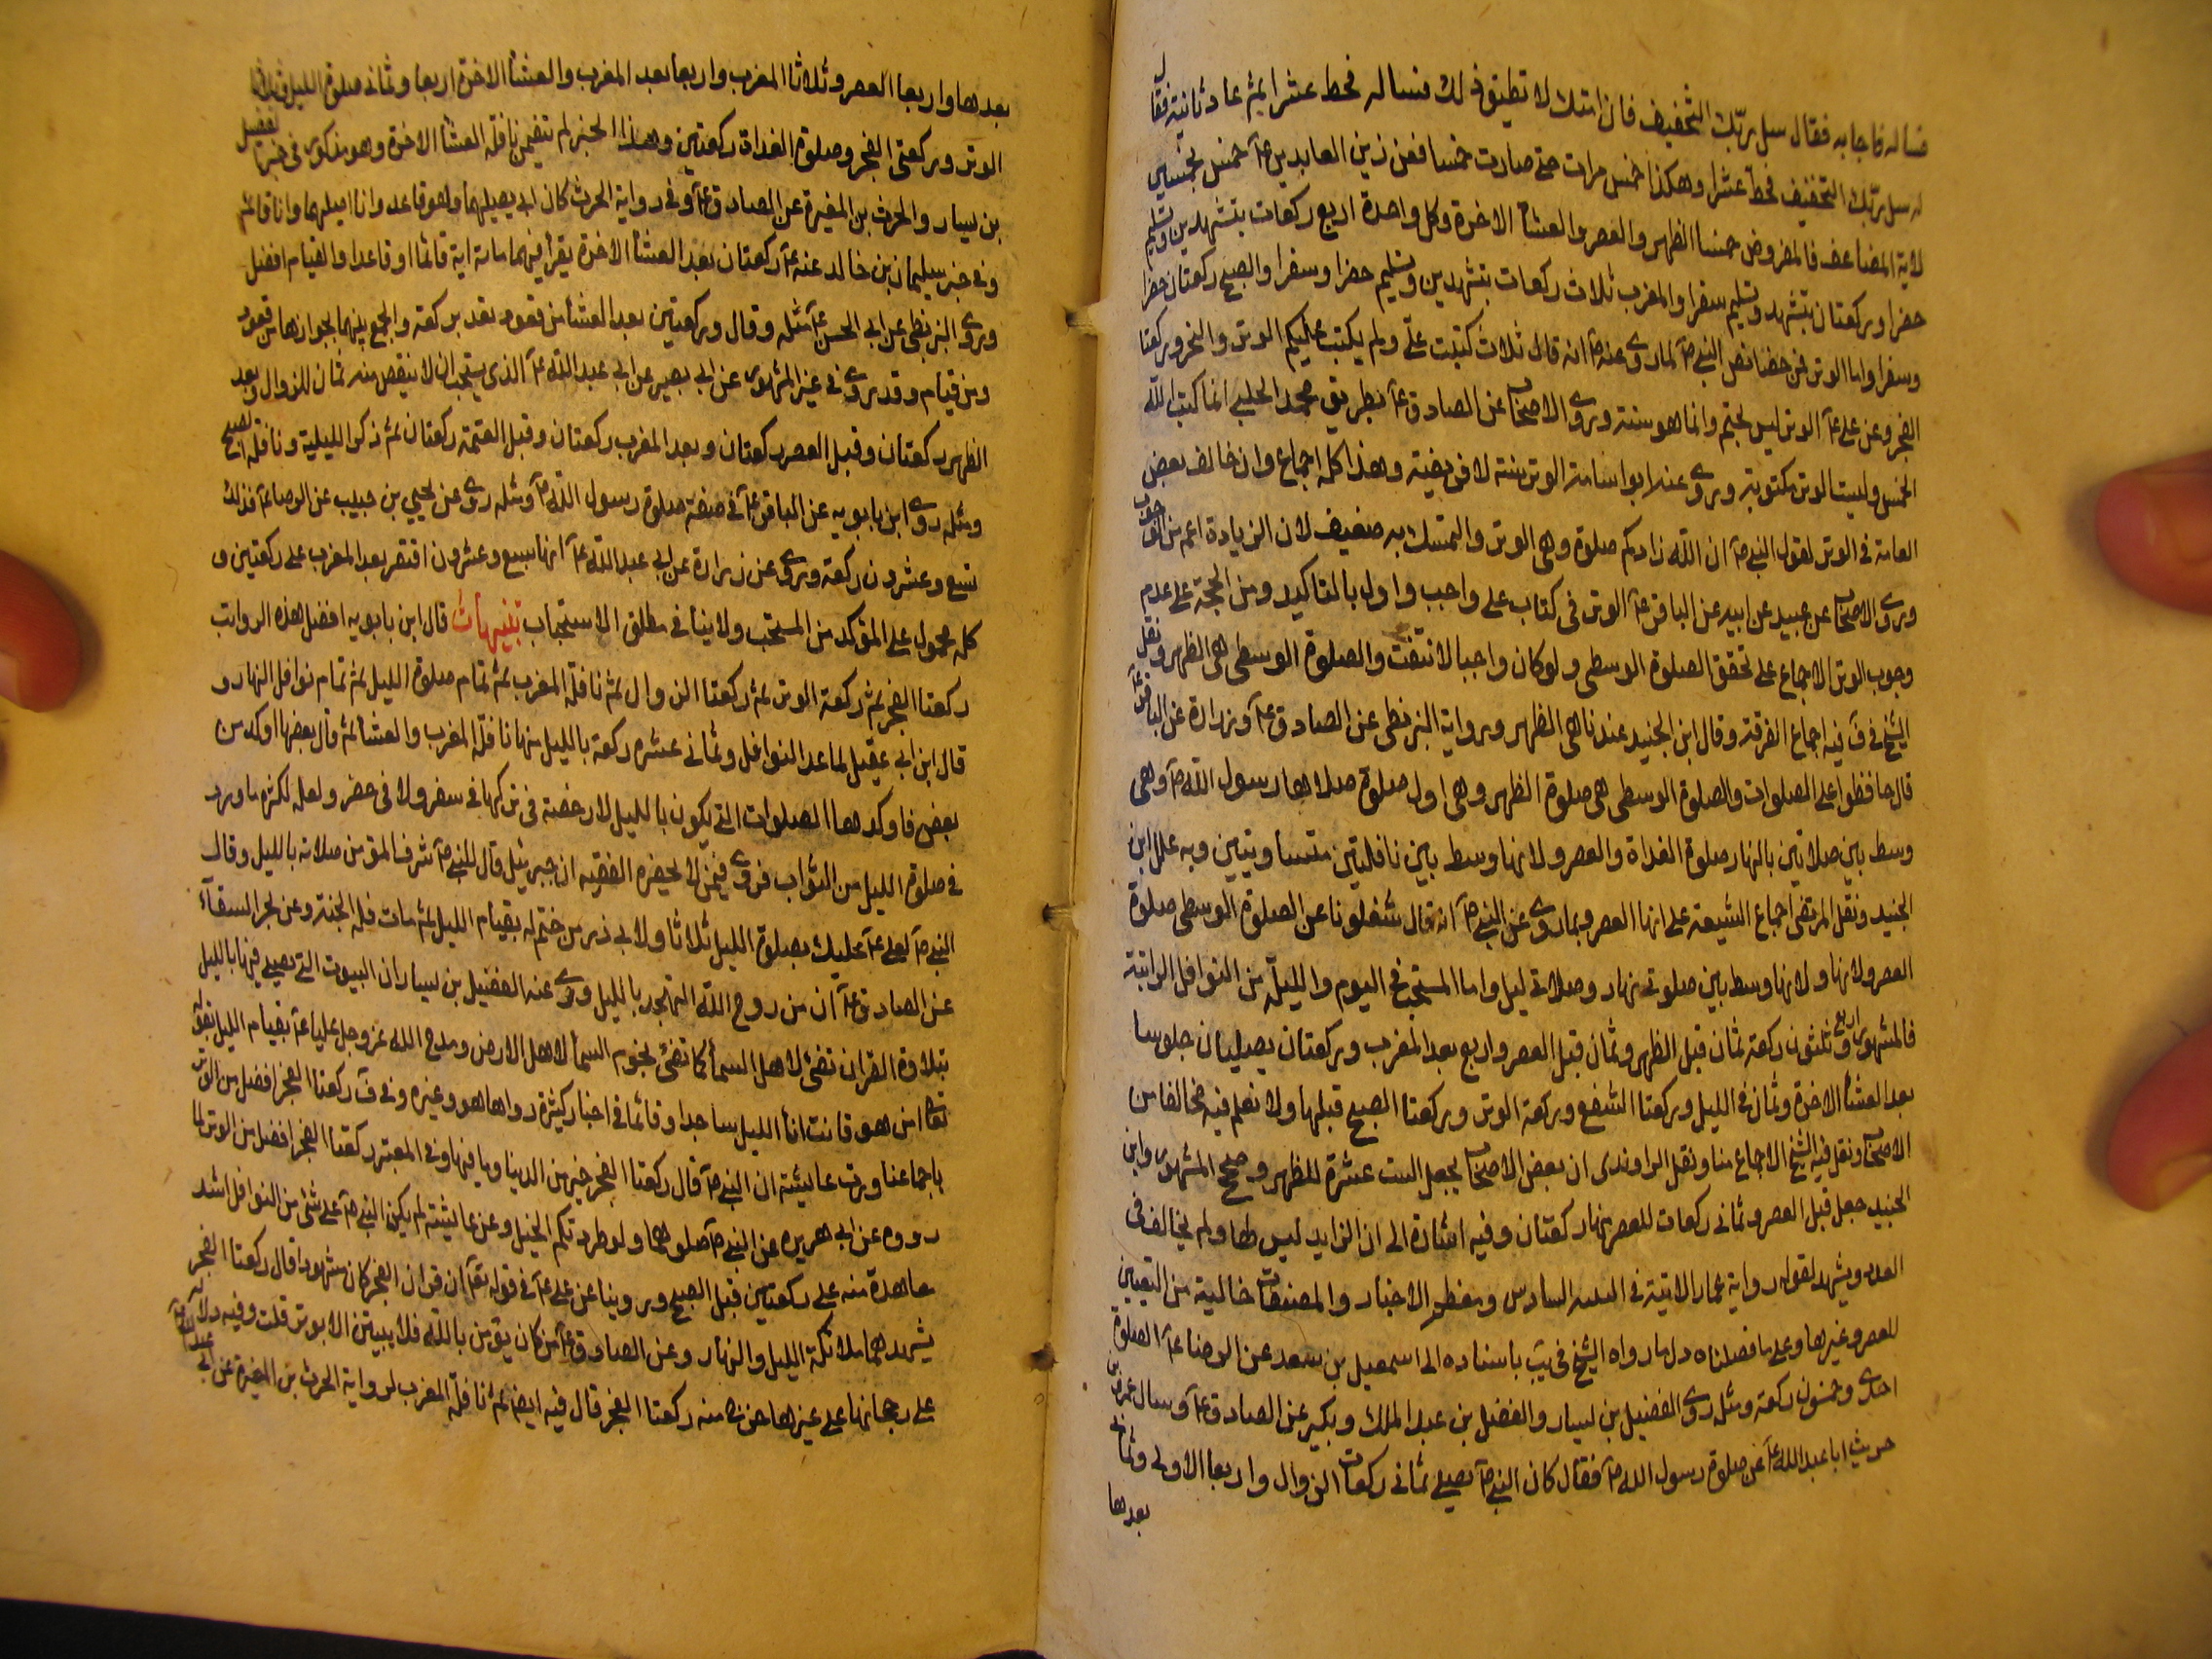 فساله فاجابه فقال سل ربّك التخفيف فان امتك لا تطيق ذلك فساله فحط عشرا ثم عاد ثانية فقال
له سل ربّك التخفيف فحط عشرا وهكذا خمس مرات حتى صارت خمسا فعن زين العابدين ع خمس بخمسين
لاية المضاعف فالمفروض خمسا الظهر والعصر والعشا الاخرة وكل واحدة اربع ركعات بتشهدين وتسليم
حضرا وركعتان بتشهد وتسليم سفرا والمغرب ثلاث ركعات بتشهدين وتسليم حضرا وسفرا والصبح ركعتان حضرا
وسفرا واما الوتر فمن خصائص النبي ص لما روى عنه ص انه قال ثلاث كتبت علىّ ولم يكتب عليكم الوتر والنحر وركعتا
الفجر وعن علي ع الوتر ليس بحتم وانما هو سنة وروى الاصحاب عن الصادق ع بطريق محمد الحلبي انما كتب الله
الخمس وليست الوتر مكتوبة وروى عنه ابو اسامة الوتر سنة لا فريضة وهذا كله اجماع وان خالف بعض
العامة في الوتر لقول النبي ص ان الله زادكم صلوة وهي الوتر والتمسك به ضعيف لان الزيادة اعم من الوجوب
وروى الاصحاب عن عبيد عن ابيه عن الباقر ع الوتر في كتاب علي واجب واول بالتاكيد ومن الحجة على عدم
وجوب الوتر الاجماع على تحقق الصلوة الوسطى ولو كان واجبا لانتفت والصلوة الوسطى هي الظهر ونقل
الشيخ في ف فيه اجماع الفرقة وقال ابن الجنيد عندنا هي الظهر ورواية البزنطى عن الصادق ع وزرارة عن الباقر ع
قال حافظوا على الصلوات والصلوة الوسطى هي صلوة الظهر وهي اول صلوة صلاها رسول الله ص وهي
وسط بين صلاتين بالنهار صلوة الغداة والعصر ولانها وسط بين نافلتين متساويتين وبه علل ابن
الجنيد ونقل المرتضى اجماع الشيعة على انها العصر وبما روى عن النبي ص انه قال شغلونا عن الصلوة الوسطى صلوة
العصر ولانها ولانها وسط بين صلوتي نهار وصلاتي ليل واما المستحب في اليوم والليلة من النوافل الراتبة
فالمشهور اربع وثلثون ركعة ثمان قبل الظهر وثمان قبل العصر واربع بعد المغرب وركعتان يصليان جلوسا
بعد العشا الاخرة وثمان في الليل وركعتا الشفع وركعة الوتر وركعتا الصبح قبلها ولا نعلم فيه مخالفا من
الاصحاب ونقل فيه الشيخ الاجماع منا ونقل الراوندى ان بعض الاصحاب يجعل الست عشرة للظهر وصحح المشهور وابن
الجنيد جعل قبل العصر وثمانى ركعات للعصر منها ركعتان وفيه اشارة الى ان الزايد ليس لها ولم يخالف في
العدد ويشهد لقوله رواية عمار الاتية في السادس ومعظم الاخبار والمصنفات خالية من التعيين
للعصر وغيرها وعلى ما فصلناه دل ما رواه الشيخ في يب باسناده الى اسمعيل بن سعد عن الرضا ع الصلوة
احدى وخمسون ركعة ومثله روى الفضيل بن يسار والفضل بن عبد الملك وبكير عن الصادق ع وسال عمرو بن
حريث ابا عبد الله ع عن صلوة رسول الله ص فقال كان النبي ص يصلي ثمانى ركعات الزوال واربعا الاولى وثمان
بعدها
بعدها واربعا العصر وثلاثا المغرب واربعا بعد المغرب والعشا الاخرة اربعا وثمانى صلوة الليل وثلاثا
الوتر وركعتى الفجر وصلوة الغداة ركعتين وهذا الخبر لم يتضمن نافلة العشا الاخرة وهو مذكور في خبر الفضيل
بن يسار والحرث بن المغيرة عن الصادق ع وفي رواية الحرث كان ابي يصليهما وهو قاعد وانا اصليهما وانا قائم
وفي خبر سليمان بن خالد عنه ع ركعتان بعد العشا الاخرة يقرأ فيهما مائة اية قائما او قاعدا والقيام افضل
وروى البزنطى عن ابي الحسن ع مثله وقال وركعتين بعد العشا من قعود تعد بركعة والجمع بينهما بجوازهما من قعود
ومن قيام وقد روى في غير المشهور عن ابي بصير عن ابي عبد الله ع الذى يستحب ان لا ينقص منه ثمان للزوال وبعد
الظهر ركعتان وقبل العصر ركعتان وبعد المغرب ركعتان وقبل العتمة ركعتان ثم ذكر الليلية ونافلة الصبح
ومثله روى ابن بابويه عن الباقر ع في صفة صلوة رسول الله ص ومثله روى عن يحيى بن حبيب عن الرضا ع فذلك
تسع وعشرون ركعة وروى عن زرارة عن ابي عبد الله ع انها سبع وعشرون اقتصر بعد المغرب على ركعتين و
كله محمول على المؤكد من المستحب ولا ينافي مطلق الاستحباب تنبيهات قال ابن بابويه افضل هذه الرواتب
ركعتا الفجر ثم ركعة الوتر ثم ركعتا الزوال ثم نافلة المغرب ثم تمام صلوة الليل ثم تمام نوافل النهار و
قال ابن ابي عقيل لما عد النوافل وثمانى عشره ركعة بالليل منها نافلة المغرب والعشا ثم قال بعضها اوكد من
بعض فاوكدها الصلوات التي يكون بالليل لا رخصة في تركها في سفر ولا في حضر ولعله لكثرة ما ورد
في صلوة الليل من الثواب فروى فيمن لا يحضره الفقيه ان جبرئيل قال للنبي ص شرف المؤمن صلاته بالليل وقال
النبي ص لعلي ع عليك بصلوة الليل ثلاثا ولابي ذر من ختم له بقيام الليل ثم مات فله الجنة وعن بحر السقآء
عن الصادق ع ان من روح الله التهجد بالليل وروى عنه الفضيل بن يسار ان البيوت التي يصلى فيها بالليل
بتلاوة القران تضئ لاهل السما كما تضئ نجوم السما لاهل الارض ومدح الله عز وجل عليا ع بقيام الليل بقوله
تعالى امن هو قانت اناء الليل ساجدا وقائما في اخبار كثيرة رواها هو وغيره وفي ف ركعتا الفجر افضل من الوتر
باجماعنا وروت عائشة ان النبي ص قال ركعتا الفجر خير من الدنيا وما فيها وفي المعتبر ركعتا الفجر افضل من الوتر لما
رووه عن ابي هريره عن النبي ص صلوهما ولو طردتكم الخيل وعن عايشة لم يكن النبي ص على شئ من النوافل اشد
معاهدة منه على ركعتين قبل الصبح وروينا عن علي ع في قوله تعالى ان قران الفجر كان مشهودا قال ركعتا الفجر
يشهدهما ملائكة الليل والنهار وعن الصادق ع من كان يؤمن بالله فلا يبيتن الا بوتر قلت وفيه دلالة
على رجحانها على غيرها من منه ركعتا الفجر قال فيه ايض ثم نافلة المغرب لرواية الحرث بن المغيرة عن ابي عبد الله ع